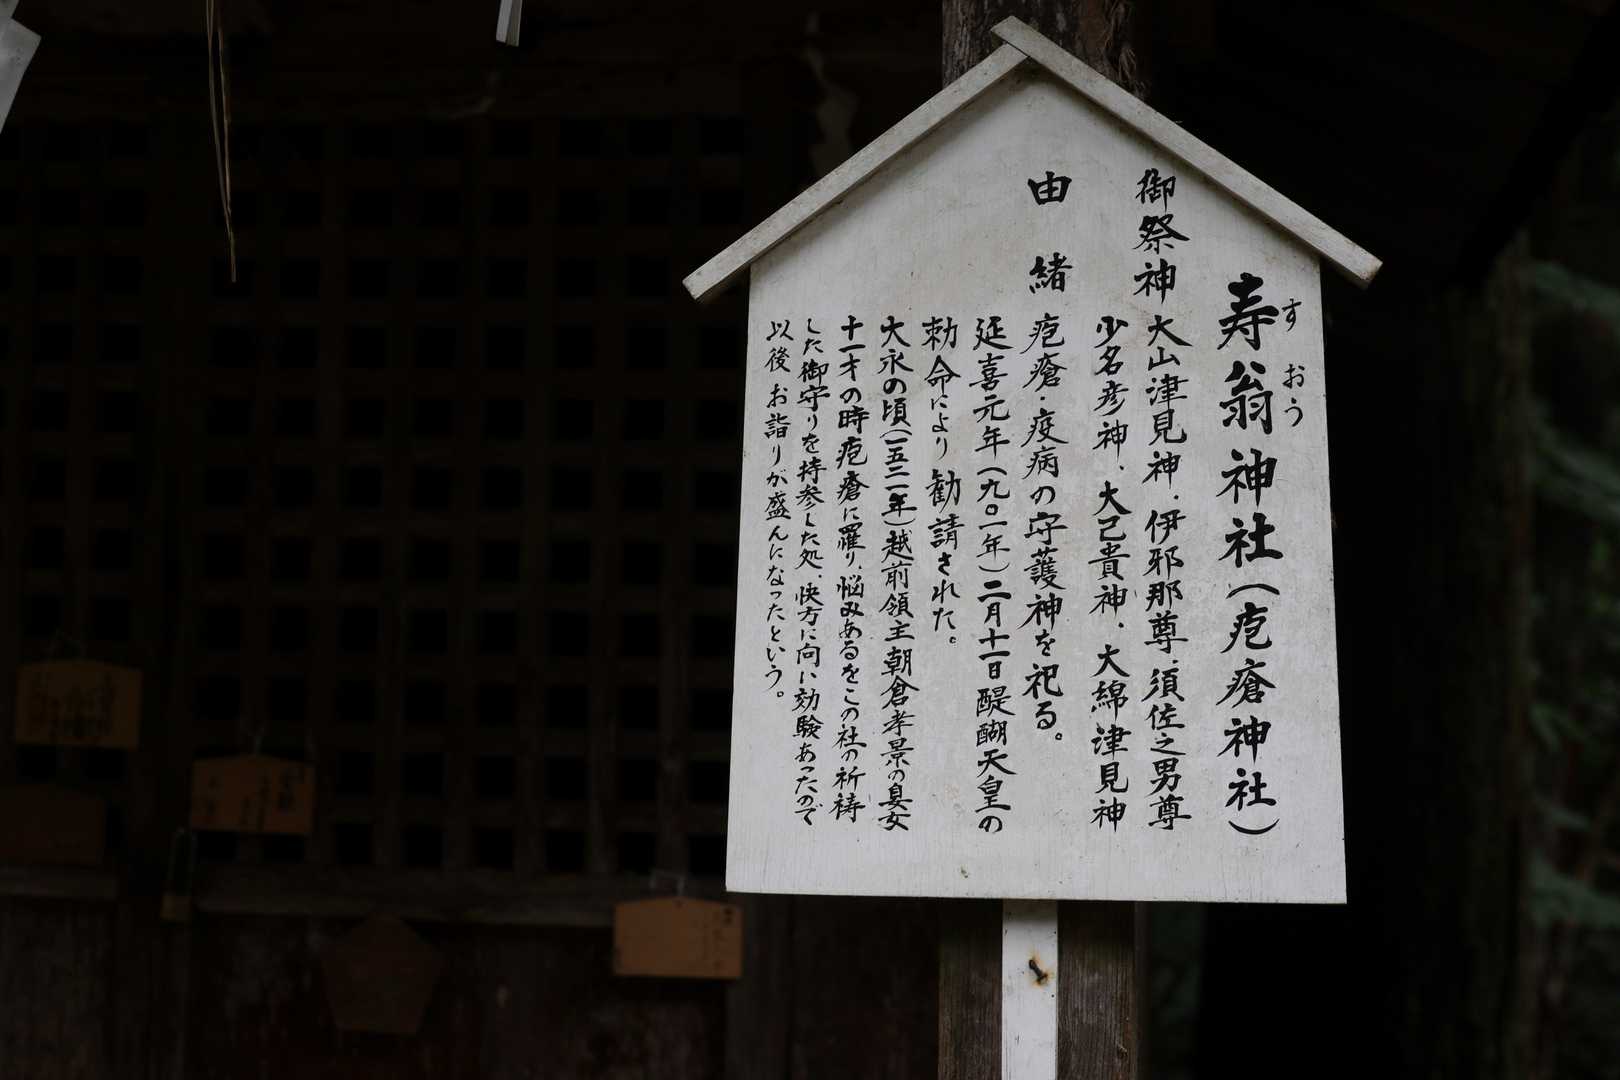 寿翁神社(疱瘡神社)
すおう
御祭神 大山津見神、伊邪那尊、須佐之男尊
少名彦神、大己貴神、大綿津見神
由緒 疱瘡・疫病の守護神を祀る。
延喜元年(九〇一年)二月十一日醍醐天皇の
勅命により勧請された。
大永の頃(一五二一年)越前領主朝倉孝景の息女
十一才の時疱瘡に羅り、悩みあるをこの社の祈祷
した御守りを持参した処、快方に向い効験あったので
以後お詣りが盛んになったという。